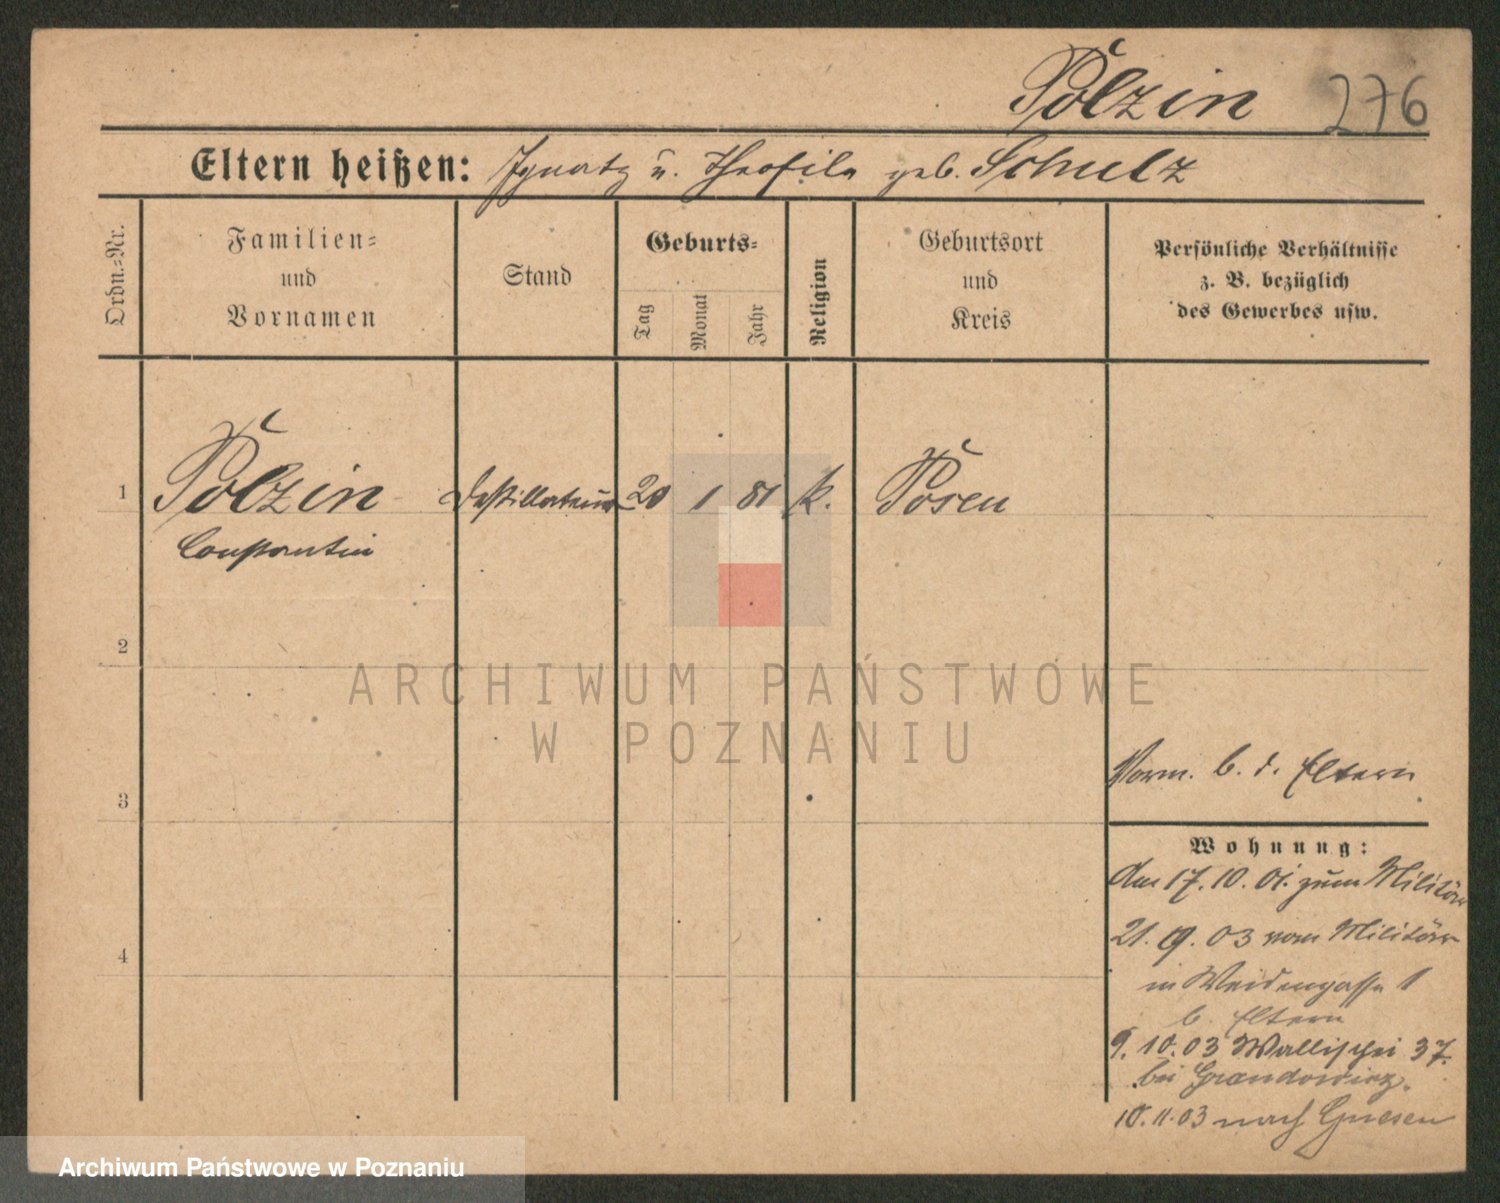 Polzin 276
Eltern heißen: Ignatz u. Theofila geb. Schulz
Ordn.-Nr.
Familien- und Vornamen
Stand
Geburts-
Tag
Monat
Jahr
Religion
Geburtsort und Kreis
Persönliche Verhältnisse
z. B. bezüglich
des Gewerbes usw.
1 Polzin Destillateur 20 1 81 k. Posen
Constantin
2
3
4
Vorm. b. d. Eltern
Wohnung:
Am 17. 10. 01. zum Militär
21. 9. 03 vom Militär
in Weidengasse 1
b. Eltern
9. 10. 03 Wallischei 37.
bei Grandowicz.
10. 11. 03 nach Gnesen
ARCHIWUM PAŃSTWOWE
W POZNANIU
Archiwum Państwowe w Poznaniu